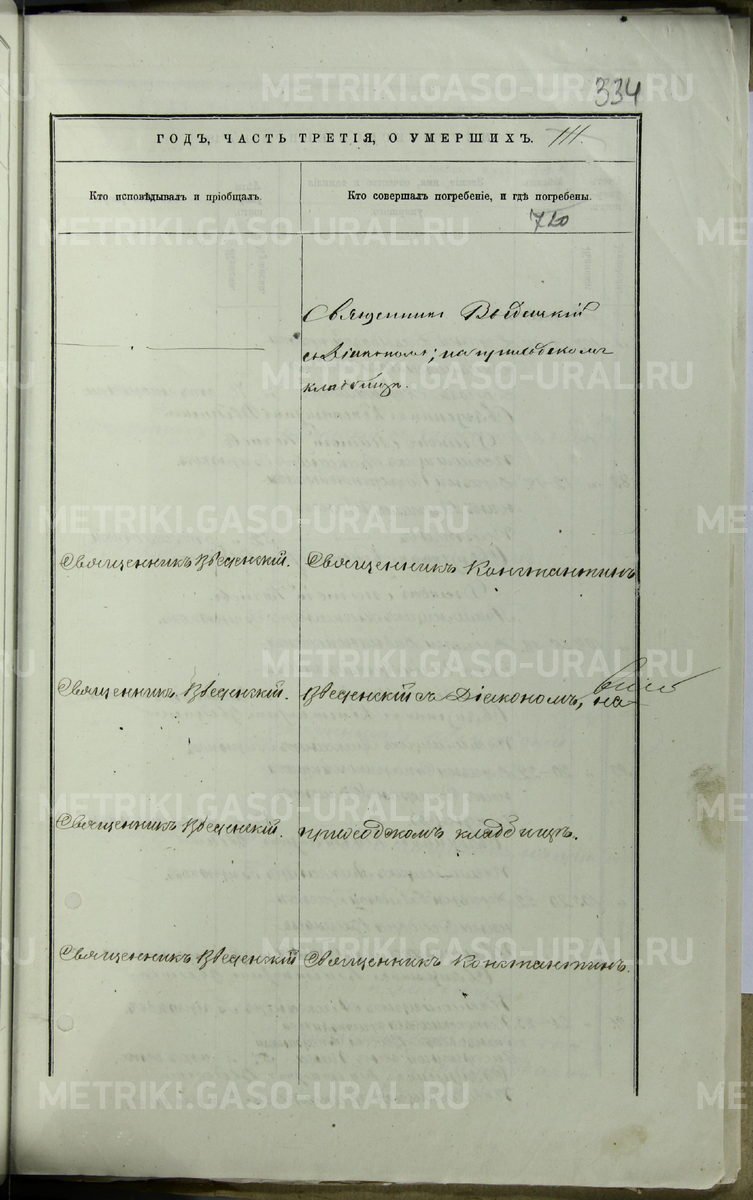 334
ГОДЪ, ЧАСТЬ ТРЕТІЯ, О УМЕРШИХЪ. III.
Кто исповѣдывалъ и пріобщалъ.
Кто совершалъ погребеніе, и гдѣ погребены.
Священникъ Введенскій
с Діакономъ; на приходскомъ
кладбищѣ.
Священникъ Введенскій. Священникъ Константинъ
Священникъ Введенскій. Введенскій съ Діакономъ, на
Священникъ Введенскій. приходскомъ кладбищѣ.
Священникъ Введенскій Священникъ Константинъ.
METRIKI.GASO-URAL.RU